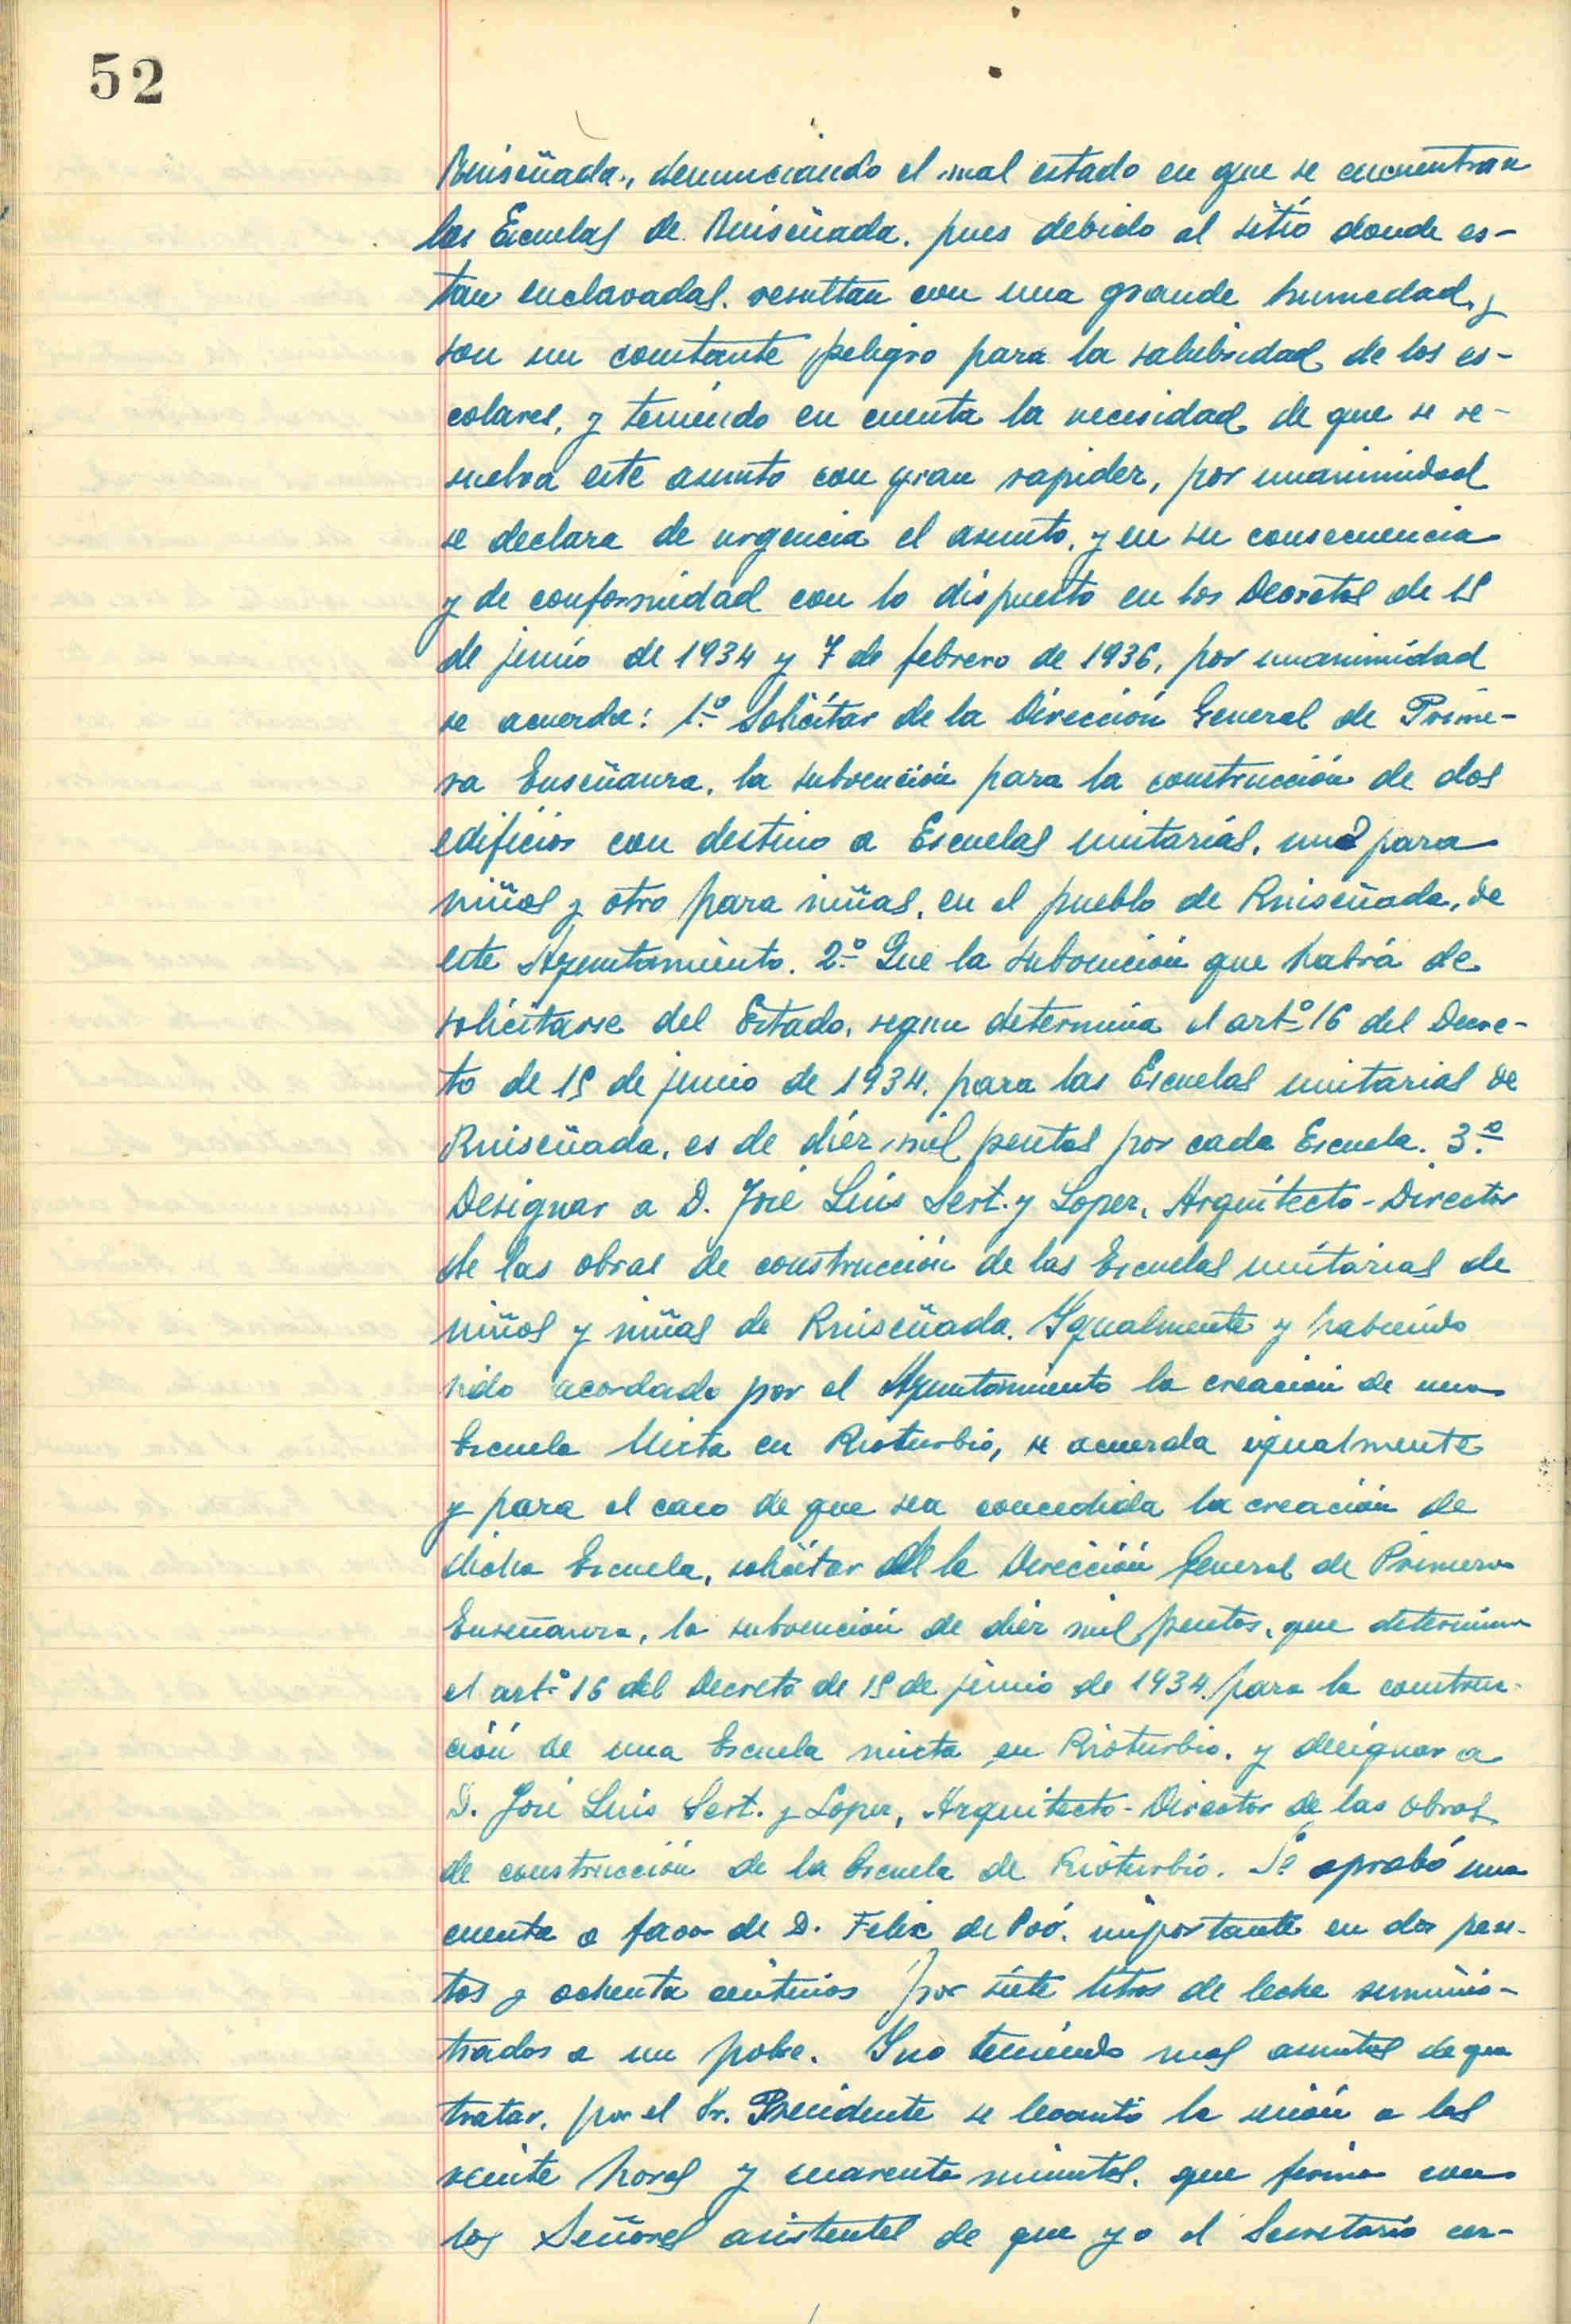 52
Ruiseñada, denunciando el mal estado en que se encuentran
las Escuelas de Ruiseñada, pues debido al sitio donde es-
tan enclavadas, resultan con una grande humedad, y
son un constante peligro para la salubridad de los es-
colares, y teniendo en cuenta la necesidad de que se re-
suelva este asunto con gran rapidez, por unanimidad
se declara de urgencia el asunto, y en su consecuencia
y de conformidad con lo dispuesto en los Decretos de 15
de junio de 1934 y 7 de febrero de 1936, por unanimidad
se acuerda: 1.º Solicitar de la Dirección General de Prime-
ra Enseñanza, la subvención para la construcción de dos
edificios con destino a Escuelas unitarias, uno para
niños y otro para niñas, en el pueblo de Ruiseñada, de
este Ayuntamiento. 2.º Que la subvención que habrá de
solicitarse del Estado, segun determina el artº 16 del Decre-
to de 15 de junio de 1934, para las Escuelas unitarias de
Ruiseñada, es de diez mil pesetas por cada Escuela. 3.º
Designar a D. José Luis Sert y Lopez, Arquitecto-Director
de las obras de construcción de las Escuelas unitarias de
niños y niñas de Ruiseñada. Igualmente y habiendo
sido acordado por el Ayuntamiento la creación de una
Escuela Mixta en Rioturbio, se acuerda igualmente
y para el caso de que sea concedida la creación de
dicha Escuela, solicitar de la Dirección General de Primera
Enseñanza, la subvención de diez mil pesetas, que determina
el artº 16 del Decreto de 15 de junio de 1934, para la construc-
ción de una Escuela mixta en Rioturbio, y designar a
D. José Luis Sert y Lopez, Arquitecto-Director de las obras
de construcción de la Escuela de Rioturbio. Se aprobó una
cuenta a favor de D. Felix de Poó, importante en dos pese-
tas y ochenta centimos por siete litros de leche suminis-
trados a un pobre. Y no teniendo mas asuntos de que
tratar, por el Sr. Presidente se levantó la sesión a las
veinte horas y cuarenta minutos, que firma con
los Señores asistentes de que yo el Secretario cer-